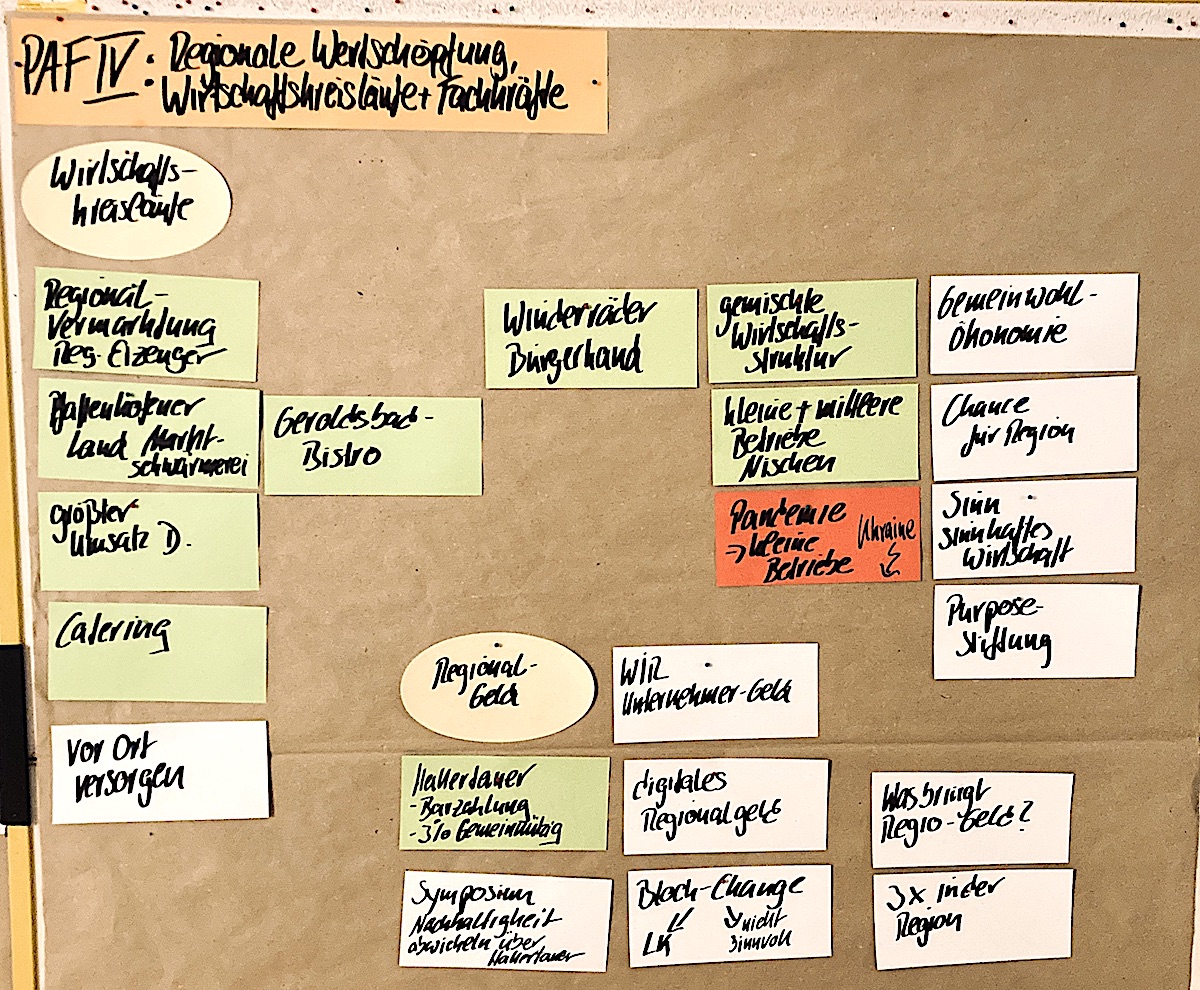 PAF IV: Regionale Wertschöpfung,
Wirtschaftskreisläufe + Fachkräfte
Wirtschafts-
kreisläufe
Regional-
vermarktung
Reg. Erzeuger
Pfaffenhofener
Land Markt-
schwärmerei
Geroldsbach-
Bistro
größter
Umsatz D.
Catering
Vor Ort
versorgen
Winderräder
Bürgerhand
gemischte
Wirtschafts-
struktur
kleine + mittlere
Betriebe
Nischen
Pandemie
→ kleine
Betriebe
Ukraine
Gemeinwohl-
ökonomie
Chance
für Region
Sinn
sinnhaftes
Wirtschaft
Purpose-
Stiftung
Regional-
Geld
WIR
Unternehmer-Geld
Hallertauer
- Barzahlung
- 3% Gemeinnützig
digitales
Regionalgeld
Was bringt
Regio-Geld?
Symposium
Nachhaltigkeit
abwickeln über
Hallertauer
Block-Change
LK
nicht
sinnvoll
3x in der
Region